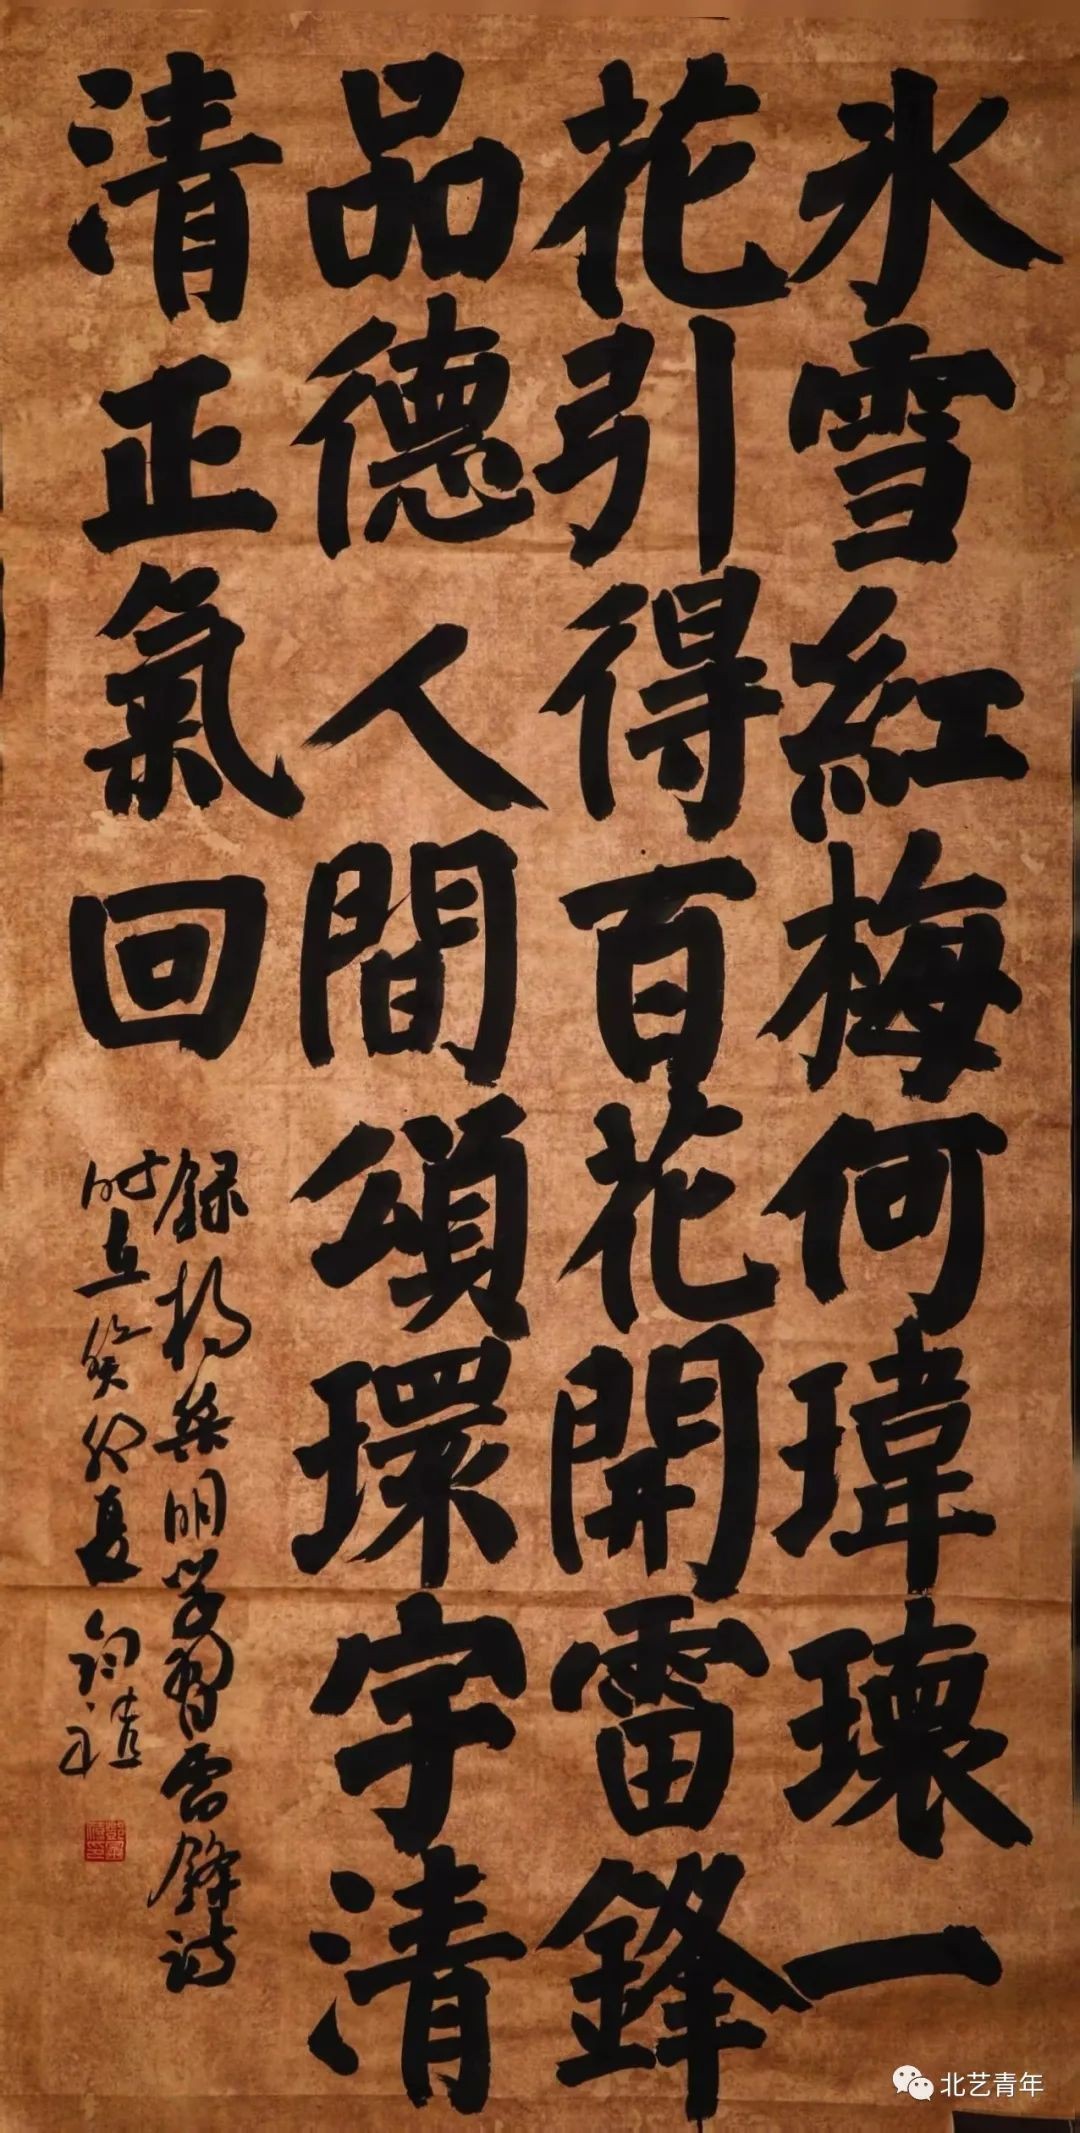 氷雪紅梅何瑋瓌一
花引得百花開雷鋒
品德人間頌環宇清
清正氣回
錄楊榮明學習雷鋒詩
时在癸卯夏
北艺青年